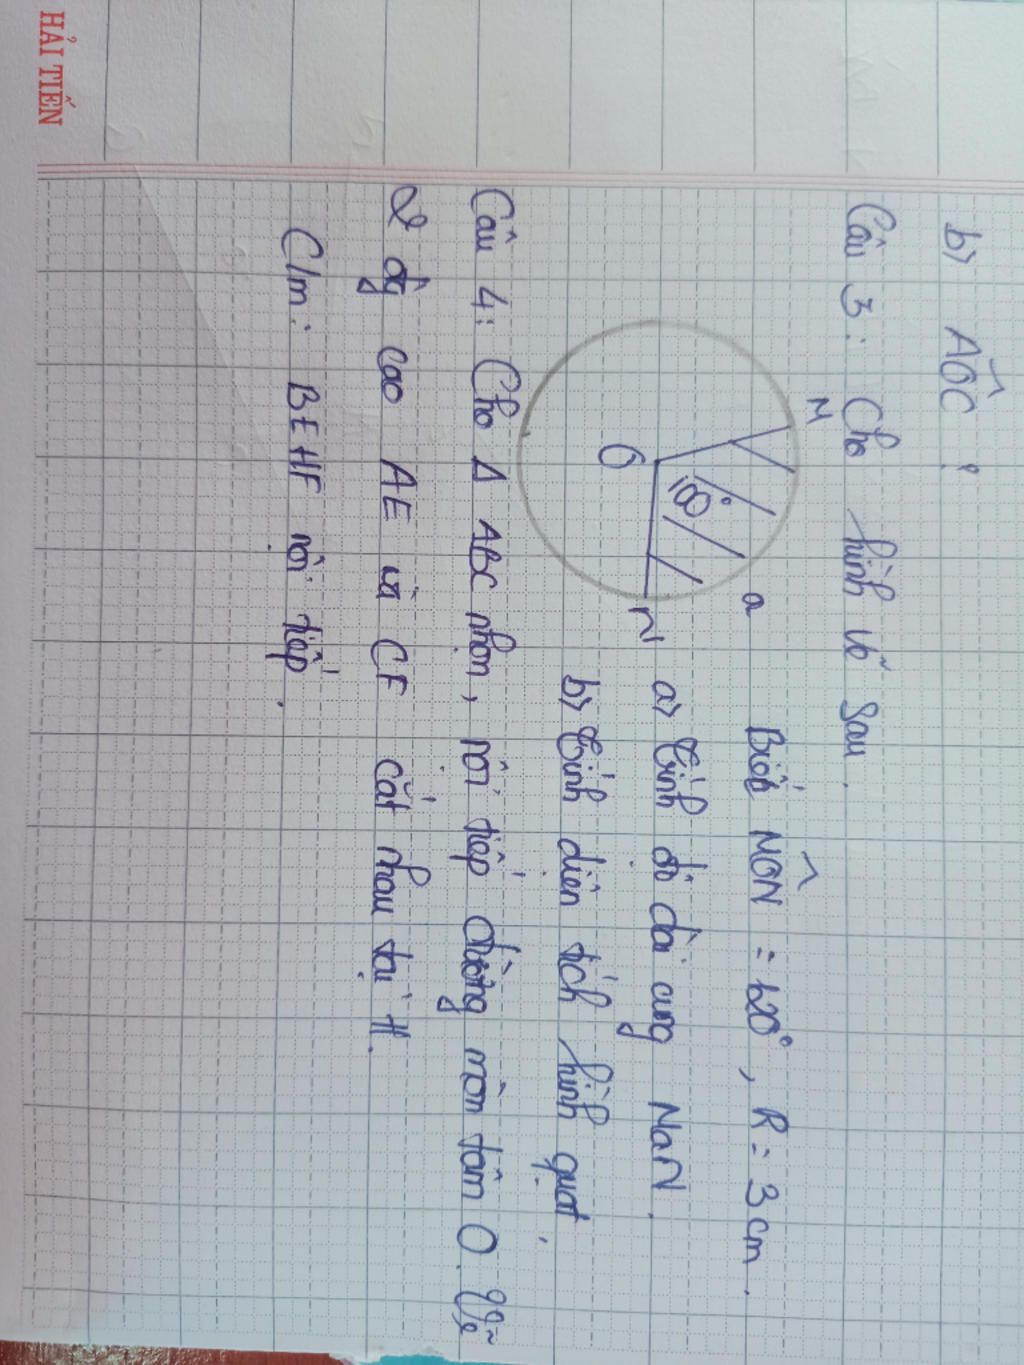 HẢI TIẾN
b) AOC ?
Câu 3: Cho hình vẽ sau.
M
a
100°
O
N
Biết MON = 120°, R = 3 cm.
a) Tính độ dài cung MaN.
b) Tính diện tích hình quạt.
Câu 4: Cho Δ ABC nhọn, nội tiếp đường tròn tâm O. Vẽ
2 đg cao AE và CF cắt nhau tại H.
C/m: BEHF nội tiếp.